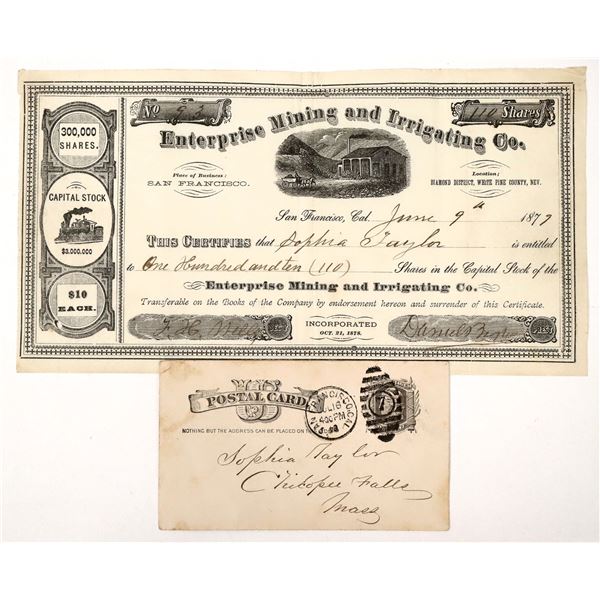 No 93
110 Shares
Enterprise Mining and Irrigating Co.
300,000
SHARES.
CAPITAL STOCK
$3,000,000
$10
EACH.
Place of Business:
SAN FRANCISCO.
Location:
DIAMOND DISTRICT, WHITE PINE COUNTY, NEV.
San Francisco, Cal. June 9th 1877
THIS CERTIFIES that Sophia Taylor is entitled
to One Hundred and ten (110) Shares in the Capital Stock of the
Enterprise Mining and Irrigating Co.
Transferable on the Books of the Company by endorsement hereon and surrender of this Certificate.
INCORPORATED
OCT. 21, 1876.
Daniel
PREST
US
POSTAL CARD
NOTHING BUT THE ADDRESS CAN BE PLACED ON
SAN FRANCISCO CAL
JUL 16
4 30 PM
7
Sophia Taylor
Chicopee Falls
Mass